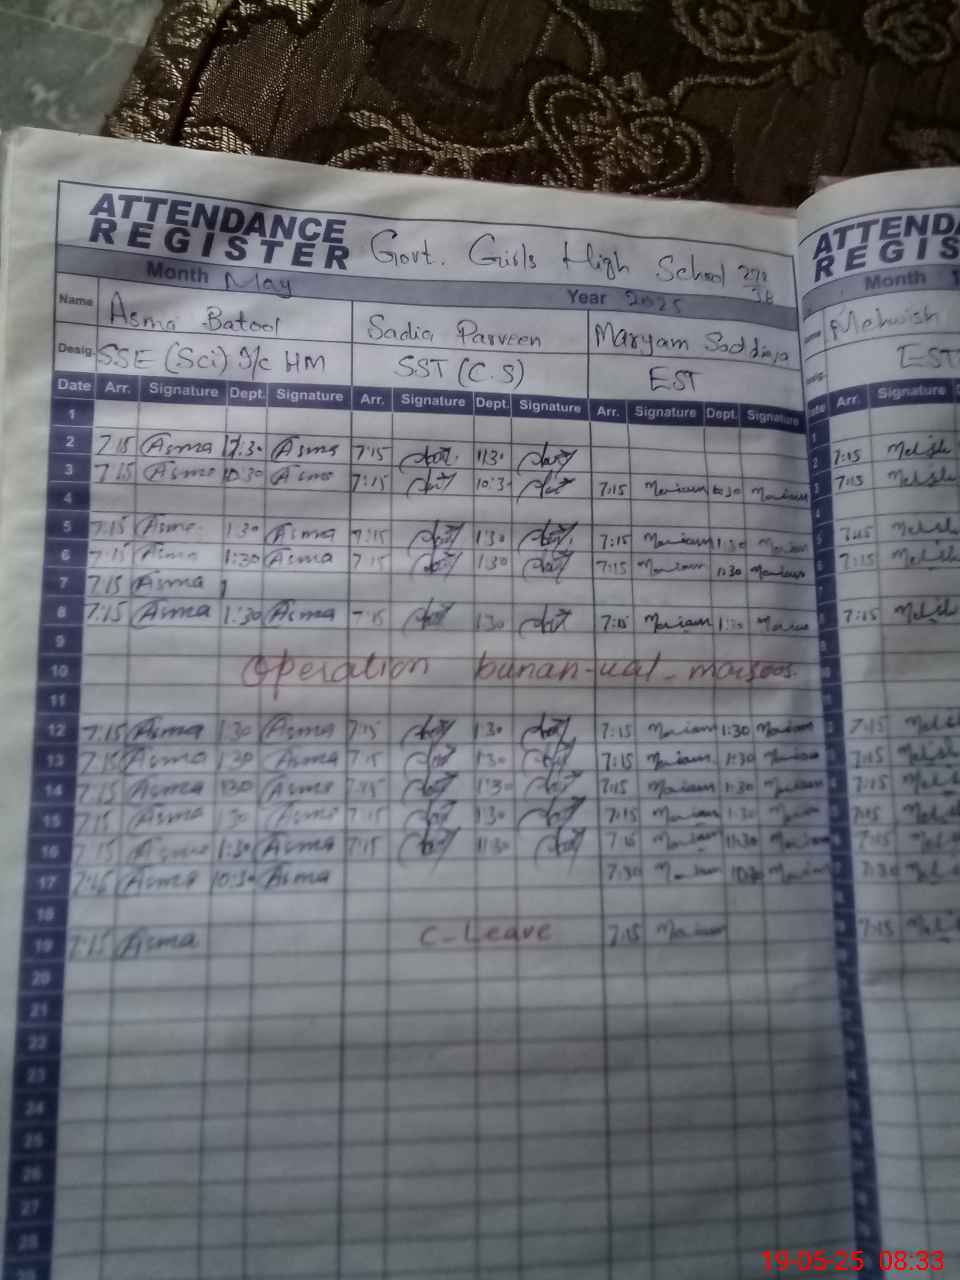 ATTENDANCE REGISTER Govt. Girls High School 270 JB
Month May Year 2025
Name Asma Batool Sadia Parveen Maryam Saddiqa
Desig. SSE (Sci) I/c HM SST (C.S) EST
Date Arr. Signature Dept. Signature Arr. Signature Dept. Signature Arr. Signature Dept. Signature
1
2 7:15 Asma 11:30 Asma 7:15 11:30
3 7:15 Asma 10:30 Asma 7:15 10:3 7:15 Mariam 10:30 Mariam
4
5 7:15 Asma 1:30 Asma 7:15 1:30 7:15 Mariam 1:30 Mariam
6 7:15 Asma 1:30 Asma 7:15 1:30 7:15 Mariam 1:30 Mariam
7 7:15 Asma
8 7:15 Asma 1:30 Asma 7:15 1:30 7:15 Mariam 1:30 Mariam
9
10 Operation bunan-ual-marsoos.
11
12 7:15 Asma 1:30 Asma 7:15 1:30 7:15 Mariam 1:30 Mariam
13 7:15 Asma 1:30 Asma 7:15 1:30 7:15 Mariam 1:30 Mariam
14 7:15 Asma 1:30 Asma 7:15 1:30 7:15 Mariam 1:30 Mariam
15 7:15 Asma 1:30 Asma 7:15 1:30 7:15 Mariam 1:30 Mariam
16 7:15 Asma 1:30 Asma 7:15 11:30 7:15 Mariam 11:30 Mariam
17 7:15 Asma 10:30 Asma 7:30 Mariam 10:30 Mariam
18
19 7:15 Asma C-Leave 7:15 Mariam
20
21
22
23
24
25
26
27
28
ATTENDA
REGIS
Month
Mehwish
EST
Arr. Signature
7:15
7:15
7:15
7:15
7:15
7:15
7:15
7:15
7:15
7:15
7:30
7:15
19-05-25 08:33